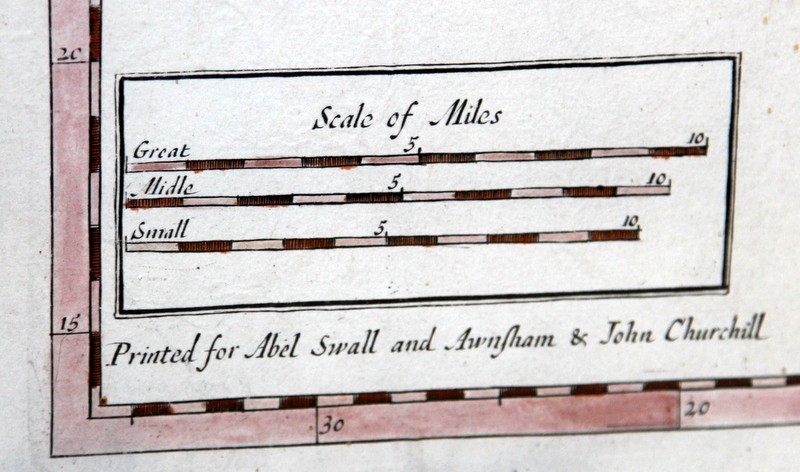 20
Scale of Miles
Great 5 10
Midle 5 10
Small 5 10
15
Printed for Abel Swall and Awnſham & John Churchill
30 20